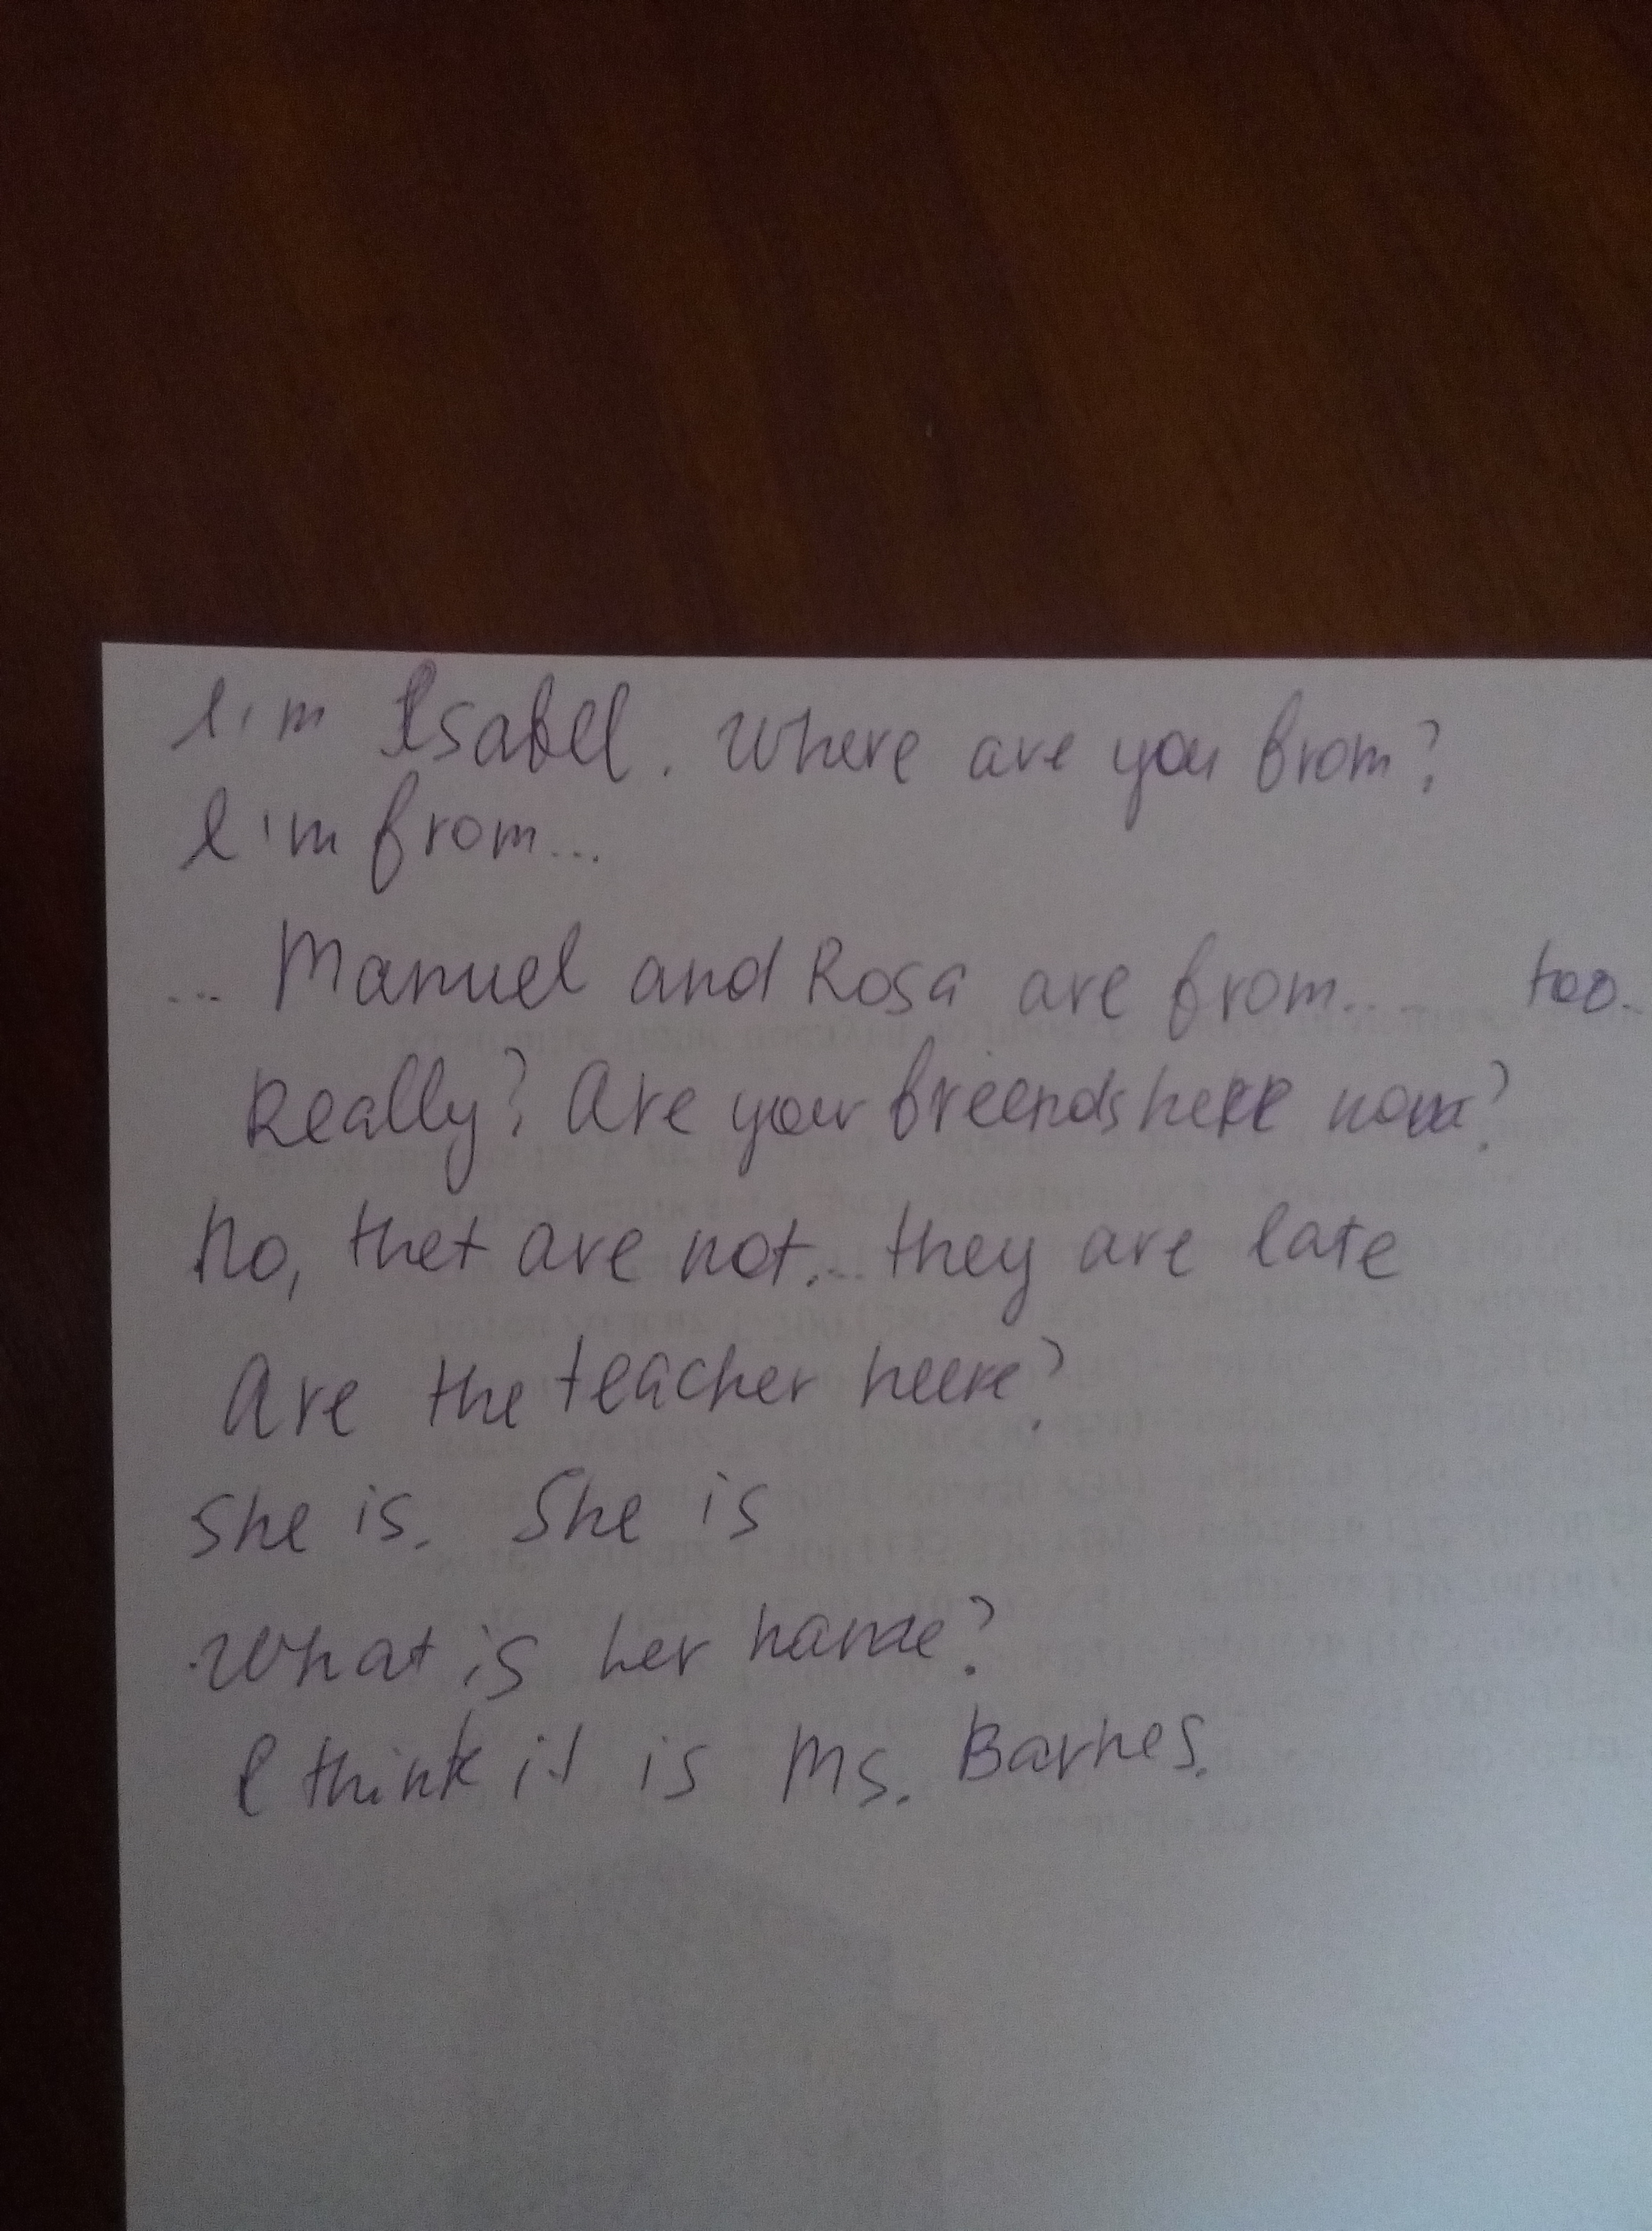 I'm Isabel. Where are you from?
I'm from...
... Manuel and Rosa are from.... too.
Really? Are your freends here now?
No, thet are not... they are late
Are the teacher heere?
She is. She is
What is her name?
I think it is Ms. Barnes.